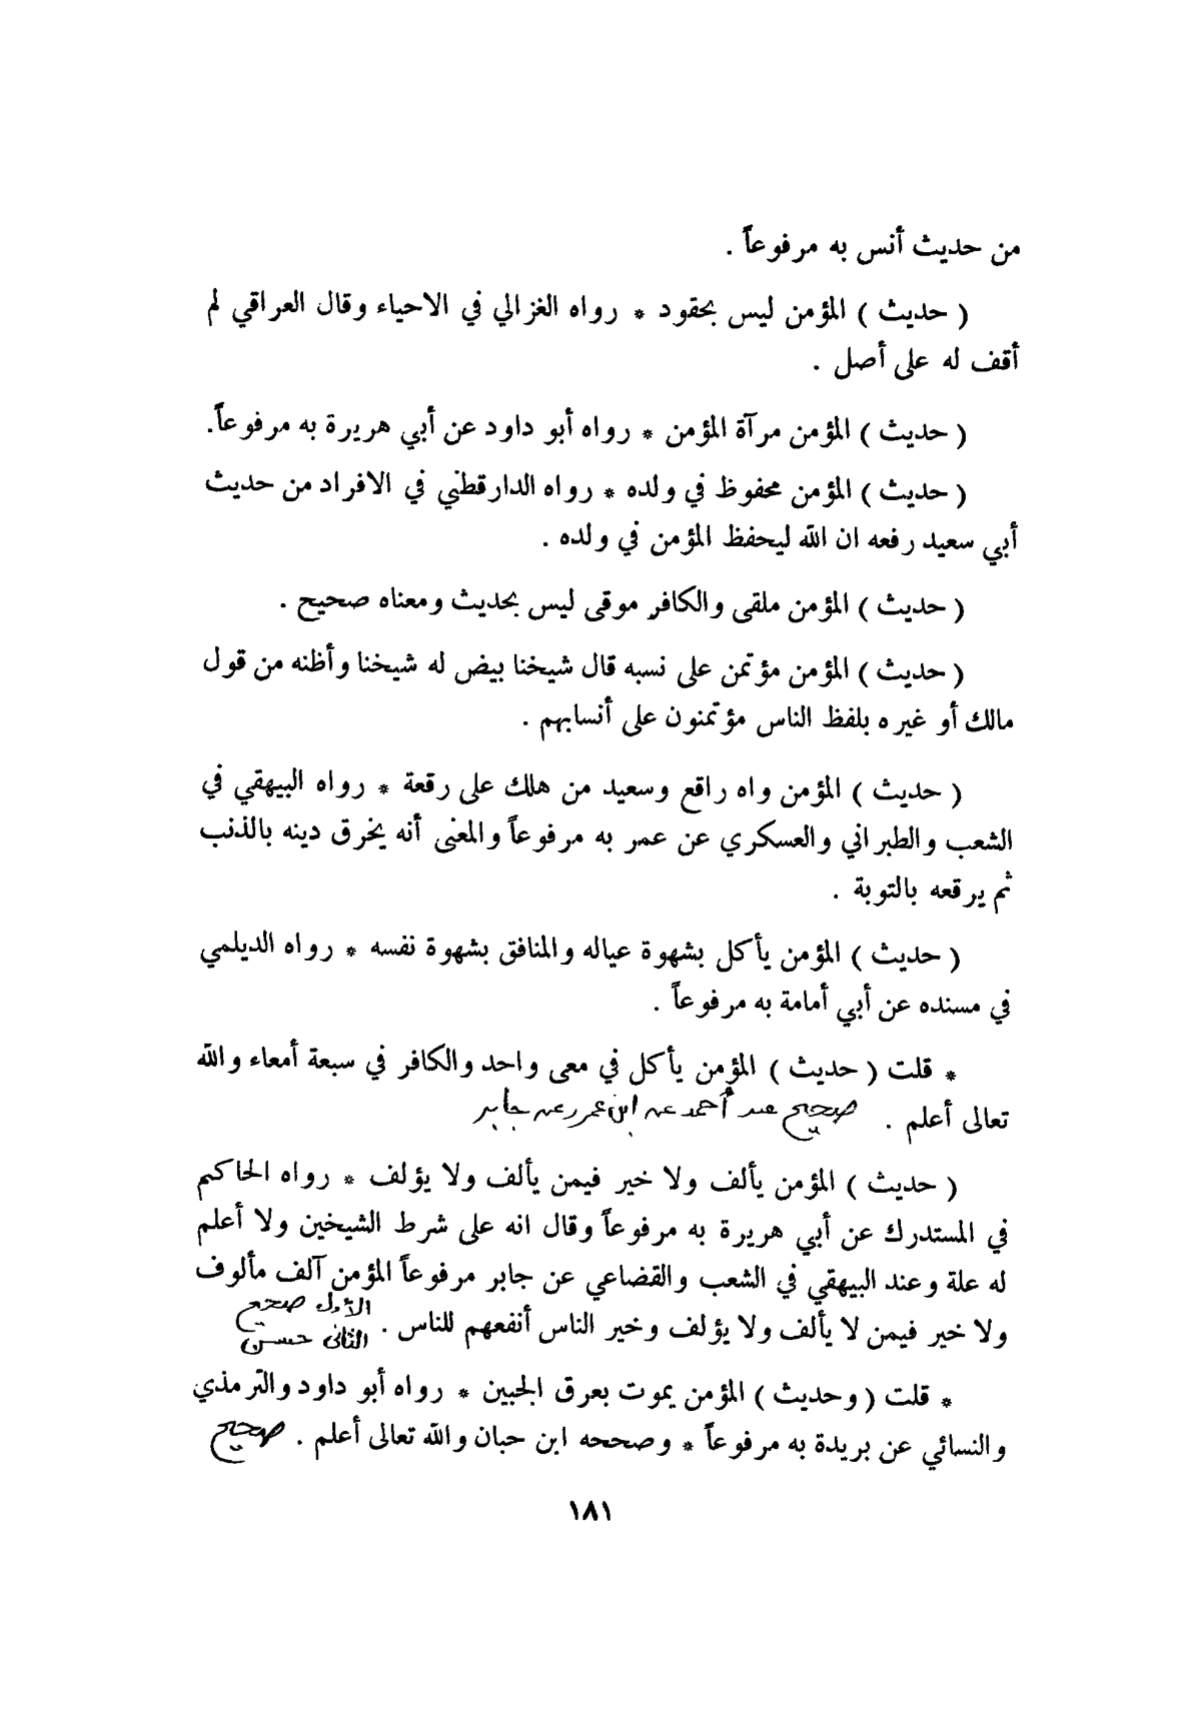 من حديث أنس به مرفوعاً .
( حديث ) المؤمن ليس بحقود * رواه الغزالي في الاحياء وقال العراقي لم
أقف له على أصل .
( حديث ) المؤمن مرآة المؤمن * رواه أبو داود عن أبي هريرة به مرفوعاً.
( حديث ) المؤمن محفوظ في ولده * رواه الدارقطني في الافراد من حديث
أبي سعيد رفعه ان الله ليحفظ المؤمن في ولده .
( حديث ) المؤمن ملقى والكافر موقى ليس بحديث ومعناه صحيح .
( حديث ) المؤمن مؤتمن على نسبه قال شيخنا بيض له شيخنا وأظنه من قول
مالك أو غيره بلفظ الناس مؤتمنون على أنسابهم .
( حديث ) المؤمن واه راقع وسعيد من هلك على رقعة * رواه البيهقي في
الشعب والطبراني والعسكري عن عمر به مرفوعاً والمعنى أنه يخرق دينه بالذنب
ثم يرقعه بالتوبة .
( حديث ) المؤمن يأكل بشهوة عياله والمنافق بشهوة نفسه * رواه الديلمي
في مسنده عن أبي أمامة به مرفوعاً .
* قلت ( حديث ) المؤمن يأكل في معى واحد والكافر في سبعة أمعاء والله
تعالى أعلم . صحيح عند أحمد عن ابن عمر وعن جابر
( حديث ) المؤمن يألف ولا خير فيمن يألف ولا يؤلف * رواه الحاكم
في المستدرك عن أبي هريرة به مرفوعاً وقال انه على شرط الشيخين ولا أعلم
له علة وعند البيهقي في الشعب والقضاعي عن جابر مرفوعاً المؤمن آلف مألوف
ولا خير فيمن لا يألف ولا يؤلف وخير الناس أنفعهم للناس . الأول صحيح
الثاني حسن
* قلت ( وحديث ) المؤمن يموت بعرق الجبين * رواه أبو داود والترمذي
والنسائي عن بريدة به مرفوعاً * وصححه ابن حبان والله تعالى أعلم . صحيح
١٨١